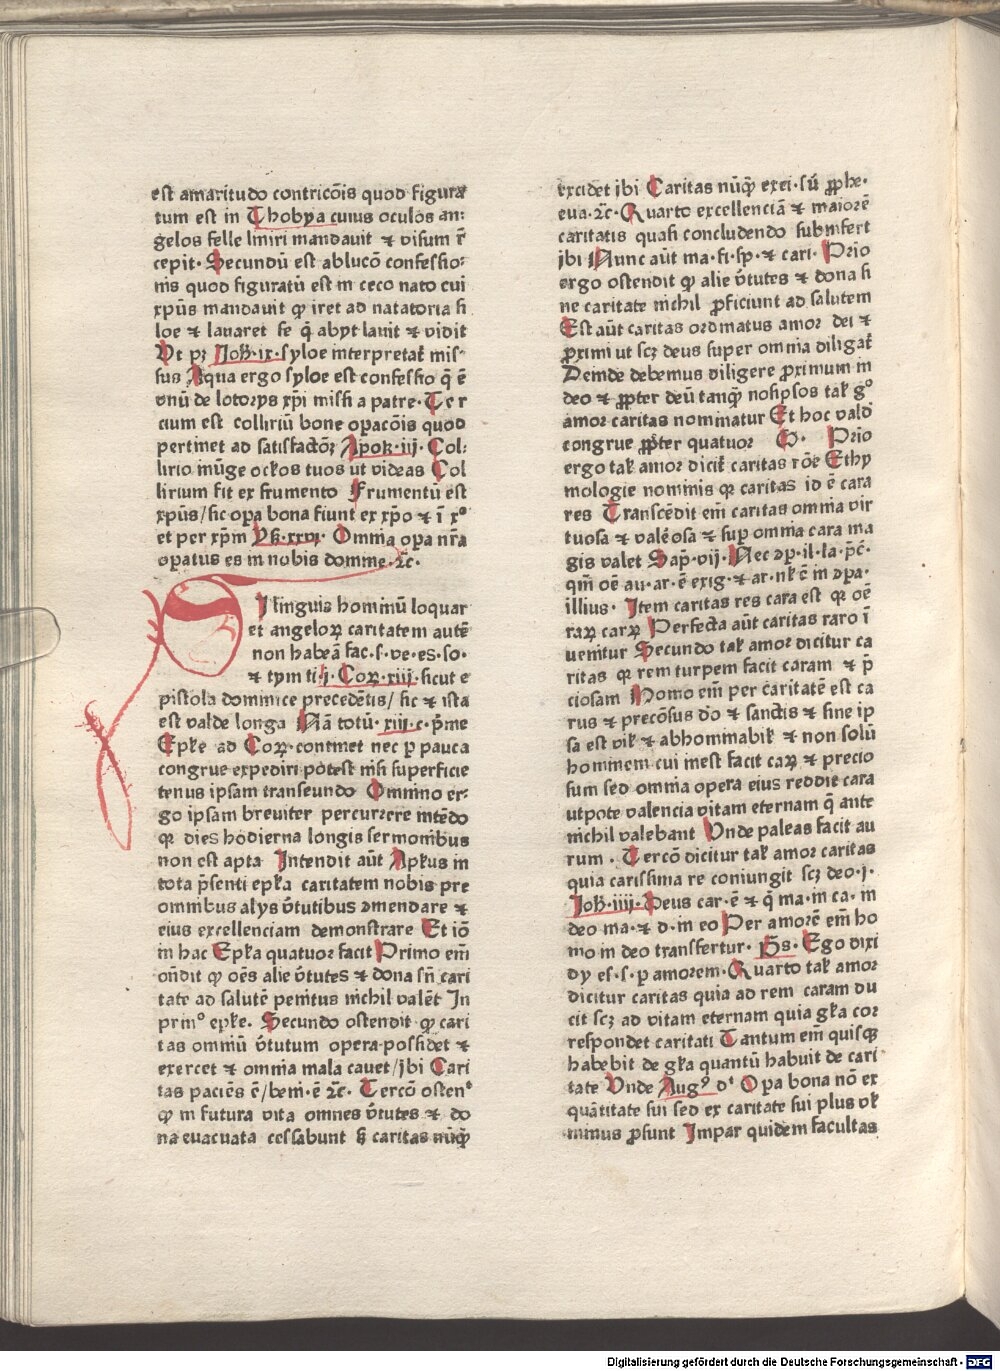 est amaritudo contricōis quod figura
tum est in Thobya cuius oculos an:
gelos felle liniri mandauit ⁊ visum r̄
cepit. Secundū est ablucō confessio:
nis quod figuratū est in ceco nato cui
xp̄us mandauit ꝙ iret ad natatoria si
loe ⁊ lauaret se q̄ abyt lauit ⁊ vidit
Vt pꝫ Joh̄.ix. syloe interpretat᷑ mis⸗
sus Aqua ergo syloe est confessio q̄ ē
vnū de lotorys xp̄i missi a patre. Ter
cium est colliriū bone op̄acōis quod
pertinet ad satisfactōꝫ Apok̄.iij. Col:
lirio inūge ocl̄os tuos ut videas Col
lirium fit ex frumento Frumentū est
xp̄us/sic op̄a bona fiunt ex xp̄o ⁊ ī xº
et per xp̄m Ys̄.xxvi. Omnia op̄a nr̄a
op̄atus es in nobis domine.⁊c̄.
SI linguis hominū loquar
et angeloꝝ caritatem autē
non habeā fac.s.ve.es.so.
⁊ tym ti.j. Coꝝ.xiij. sicut e
pistola dominice precedētis/sic ⁊ ista
est valde longa Nā totū.xiij.c.p̄me
Epl̄e ad Coꝝ.continet nec ꝑ pauca
congrue expediri potest nisi superficie
tenus ipsam transeundo Omnino er⸗
go ipsam breuiter percurrere intēdo
qꝛ dies hodierna longis sermonibus
non est apta Intendit aūt Apl̄us in
tota p̄senti epl̄a caritatem nobis pre
omnibus alys v̄tutibus ꝯmendare ⁊
eius excellenciam demonstrare Et iō
in hac Epl̄a quatuor facit Primo em̄
on̄dit ꝙ oēs alie v̄tutes ⁊ dona sn̄ cari
tate ad salutē penitus nichil valēt In
prinº epl̄e. Secundo ostendit ꝙ cari
tas omniū v̄tutum opera possidet ⁊
exercet ⁊ omnia mala cauet/ibi Cari
tas paciēs ē/beni.ē ⁊c̄. Tercō ostenᵈ
ꝙ in futura vita omnes v̄tutes ⁊ do
na euacuata cessabunt sꝫ caritas nūꝙ̄
excidet ibi Caritas nūꝙ̄ exci.sū ꝓphe.
eua.⁊c̄. Quarto excellenciā ⁊ maiorē
caritatis quasi concludendo subinfert
ibi Nunc aūt ma.fi.sp.⁊ cari. Prio
ergo ostendit ꝙ alie v̄tutes ⁊ dona si
ne caritate nichil ꝓficiunt ad salutem
Est aūt caritas ordinatus amor dei ⁊
ꝓximi ut scꝫ deus super omnia diligat᷑
Deinde debemus diligere proximum in
deo ⁊ ꝓpter deū tanꝙ̄ nosip̄sos tal̄ gº
amor caritas nominatur Et hoc vald̄
congrue ꝓpter quatuor Prio
ergo tal̄ amor dicit᷑ caritas rōe Ethy
mologie nominis qꝛ caritas id ē cara
res Transcēdit em̄ caritas omnia vir
tuosa ⁊ valēosa ⁊ suꝑ omnia cara ma
gis valet Sap̄.vij. Nec ꝯꝑ.il.la.p̄c̄.
qm̄ oē au.ar.ē exig.⁊ ar.nl̄ ē in ꝯpa.
illius. Item caritas res cara est qꝛ oē
raꝝ carꝝ Perfecta aūt caritas raro ī
uenitur Secundo tal̄ amor dicitur ca
ritas qꝛ rem turpem facit caram ⁊ p̄
ciosam Homo em̄ per caritatē est ca
rus ⁊ precōsus do̅ ⁊ sanctis ⁊ sine ip
sa est vil̄ ⁊ abhominabil̄ ⁊ non solū
hominem cui inest facit caꝝ ⁊ precio
sum sed omnia opera eius reddit cara
utpote valencia vitam eternam q̄ ante
nichil valebant Vnde paleas facit au
rum. Tercō dicitur tal̄ amor caritas
quia carissima re coniungit scꝫ deo.j.
Joh̄.iiij. Deus car.ē ⁊ q̄ ma.in ca.in
deo ma.⁊ d.in eo Per amorē em̄ ho
mo in deo transfertur. Bn̄s. Ego dixi
dy es.s.ꝑ amorem. Quarto tal̄ amor
dicitur caritas quia ad rem caram du
cit scꝫ ad vitam eternam quia gl̄a cor
respondet caritati Tantum em̄ quisqꝫ
habebit de gl̄a quantū habuit de cari
tate Vnde Augꝰ d' Opa bona nō ex
quātitate sui sed ex caritate sui plus vl̄
minus ꝓsunt Impar quidem facultas
Digitalisierung gefördert durch die Deutsche Forschungsgemeinschaft - DFG